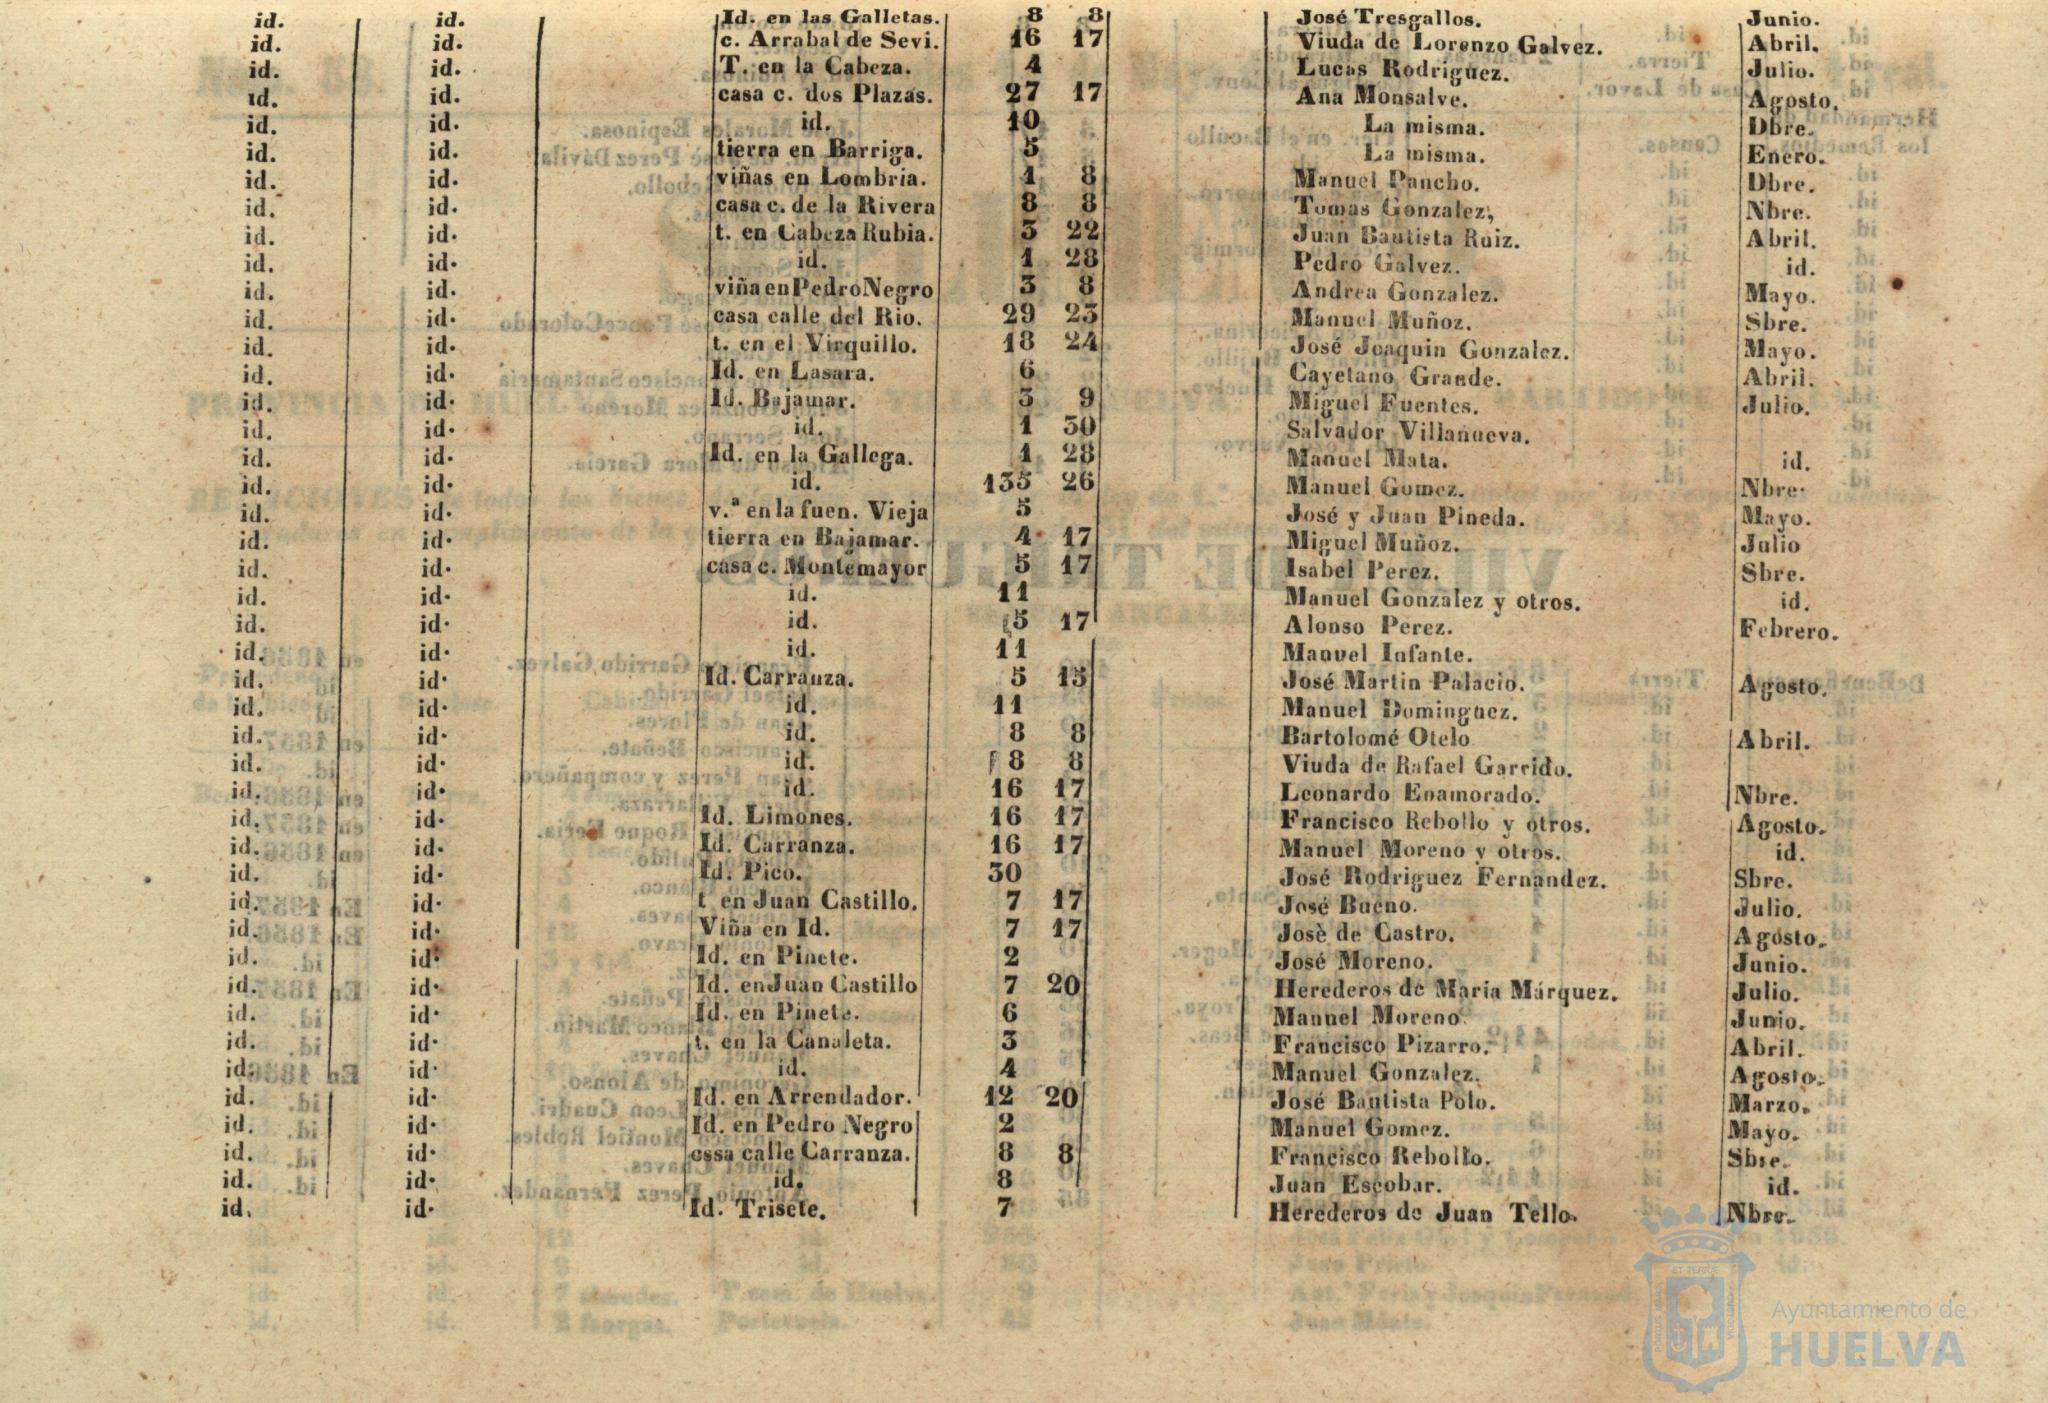 id. id. Id. en las Galletas. 8 8 José Tresgallos. Junio.
id. id. c. Arrabal de Sevi. 16 17 Viuda de Lorenzo Galvez. Abril.
id. id. T. en la Cabeza. 4 Lucas Rodriguez. Julio.
id. id. casa c. dos Plazas. 27 17 Ana Monsalve. Agosto.
id. id. id. 10 La misma. Dbre.
id. id. tierra en Barriga. 5 La misma. Enero.
id. id. viñas en Lombria. 1 8 Manuel Pancho. Dbre.
id. id. casa c. de la Rivera 8 8 Tomas Gonzalez, Nbre.
id. id. t. en Cabeza Rubia. 3 22 Juan Bautista Ruiz. Abril.
id. id. id. 1 28 Pedro Galvez. id.
id. id. viña en Pedro Negro 3 8 Andrea Gonzalez. Mayo.
id. id. casa calle del Rio. 29 23 Manuel Muñoz. Sbre.
id. id. t. en el Virquillo. 18 24 José Joaquin Gonzalez. Mayo.
id. id. Id. en Lasara. 6 Cayetano Grande. Abril.
id. id. Id. Bajamar. 3 9 Miguel Fuentes. Julio.
id. id. id. 1 30 Salvador Villanueva.
id. id. Id. en la Gallega. 1 28 Manuel Mata. id.
id. id. id. 135 26 Manuel Gomez. Nbre.
id. id. v.ª en la fuen. Vieja 5 José y Juan Pineda. Mayo.
id. id. tierra en Bajamar. 4 17 Miguel Muñoz. Julio
id. id. casa c. Montemayor 5 17 Isabel Perez. Sbre.
id. id. id. 11 Manuel Gonzalez y otros. id.
id. id. id. 5 17 Alonso Perez. Febrero.
id. id. id. 11 Manuel Infante.
id. id. Id. Carranza. 5 15 José Martin Palacio. Agosto.
id. id. id. 11 Manuel Dominguez.
id. id. id. 8 8 Bartolomé Otelo Abril.
id. id. id. 8 8 Viuda de Rafael Garrido.
id. id. id. 16 17 Leonardo Enamorado. Nbre.
id. id. Id. Limones. 16 17 Francisco Rebollo y otros. Agosto.
id. id. Id. Carranza. 16 17 Manuel Moreno y otros. id.
id. id. Id. Pico. 30 José Rodriguez Fernandez. Sbre.
id. id. t en Juan Castillo. 7 17 José Bueno. Julio.
id. id. Viña en Id. 7 17 Josè de Castro. Agosto.
id. id. Id. en Pinete. 2 José Moreno. Junio.
id. id. Id. en Juan Castillo 7 20 Herederos de Maria Márquez. Julio.
id. id. Id. en Pinete. 6 Manuel Moreno Junio.
id. id. t. en la Canaleta. 3 Francisco Pizarro. Abril.
id. id. id. 4 Manuel Gonzalez. Agosto.
id. id. Id. en Arrendador. 12 20 José Bautista Polo. Marzo.
id. id. Id. en Pedro Negro 2 Manuel Gomez. Mayo.
id. id. casa calle Carranza. 8 8 Francisco Rebollo. Sbre.
id. id. id. 8 Juan Escobar. id.
id. id. Id. Trisete. 7 Herederos de Juan Tello. Nbre.
Ayuntamiento de
HUELVA